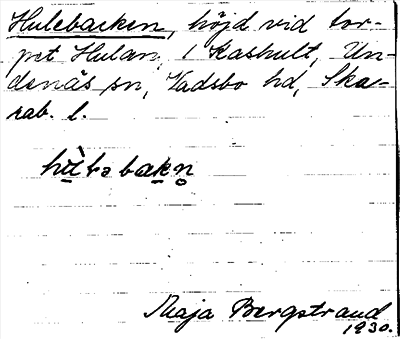 Hulebacken, höjd vid tor-
pet Hulan, 1 Kashult, Un-
denäs sn, Vadsbo hd, Ska-
rab. l.
Maja Bergstrand
1930.